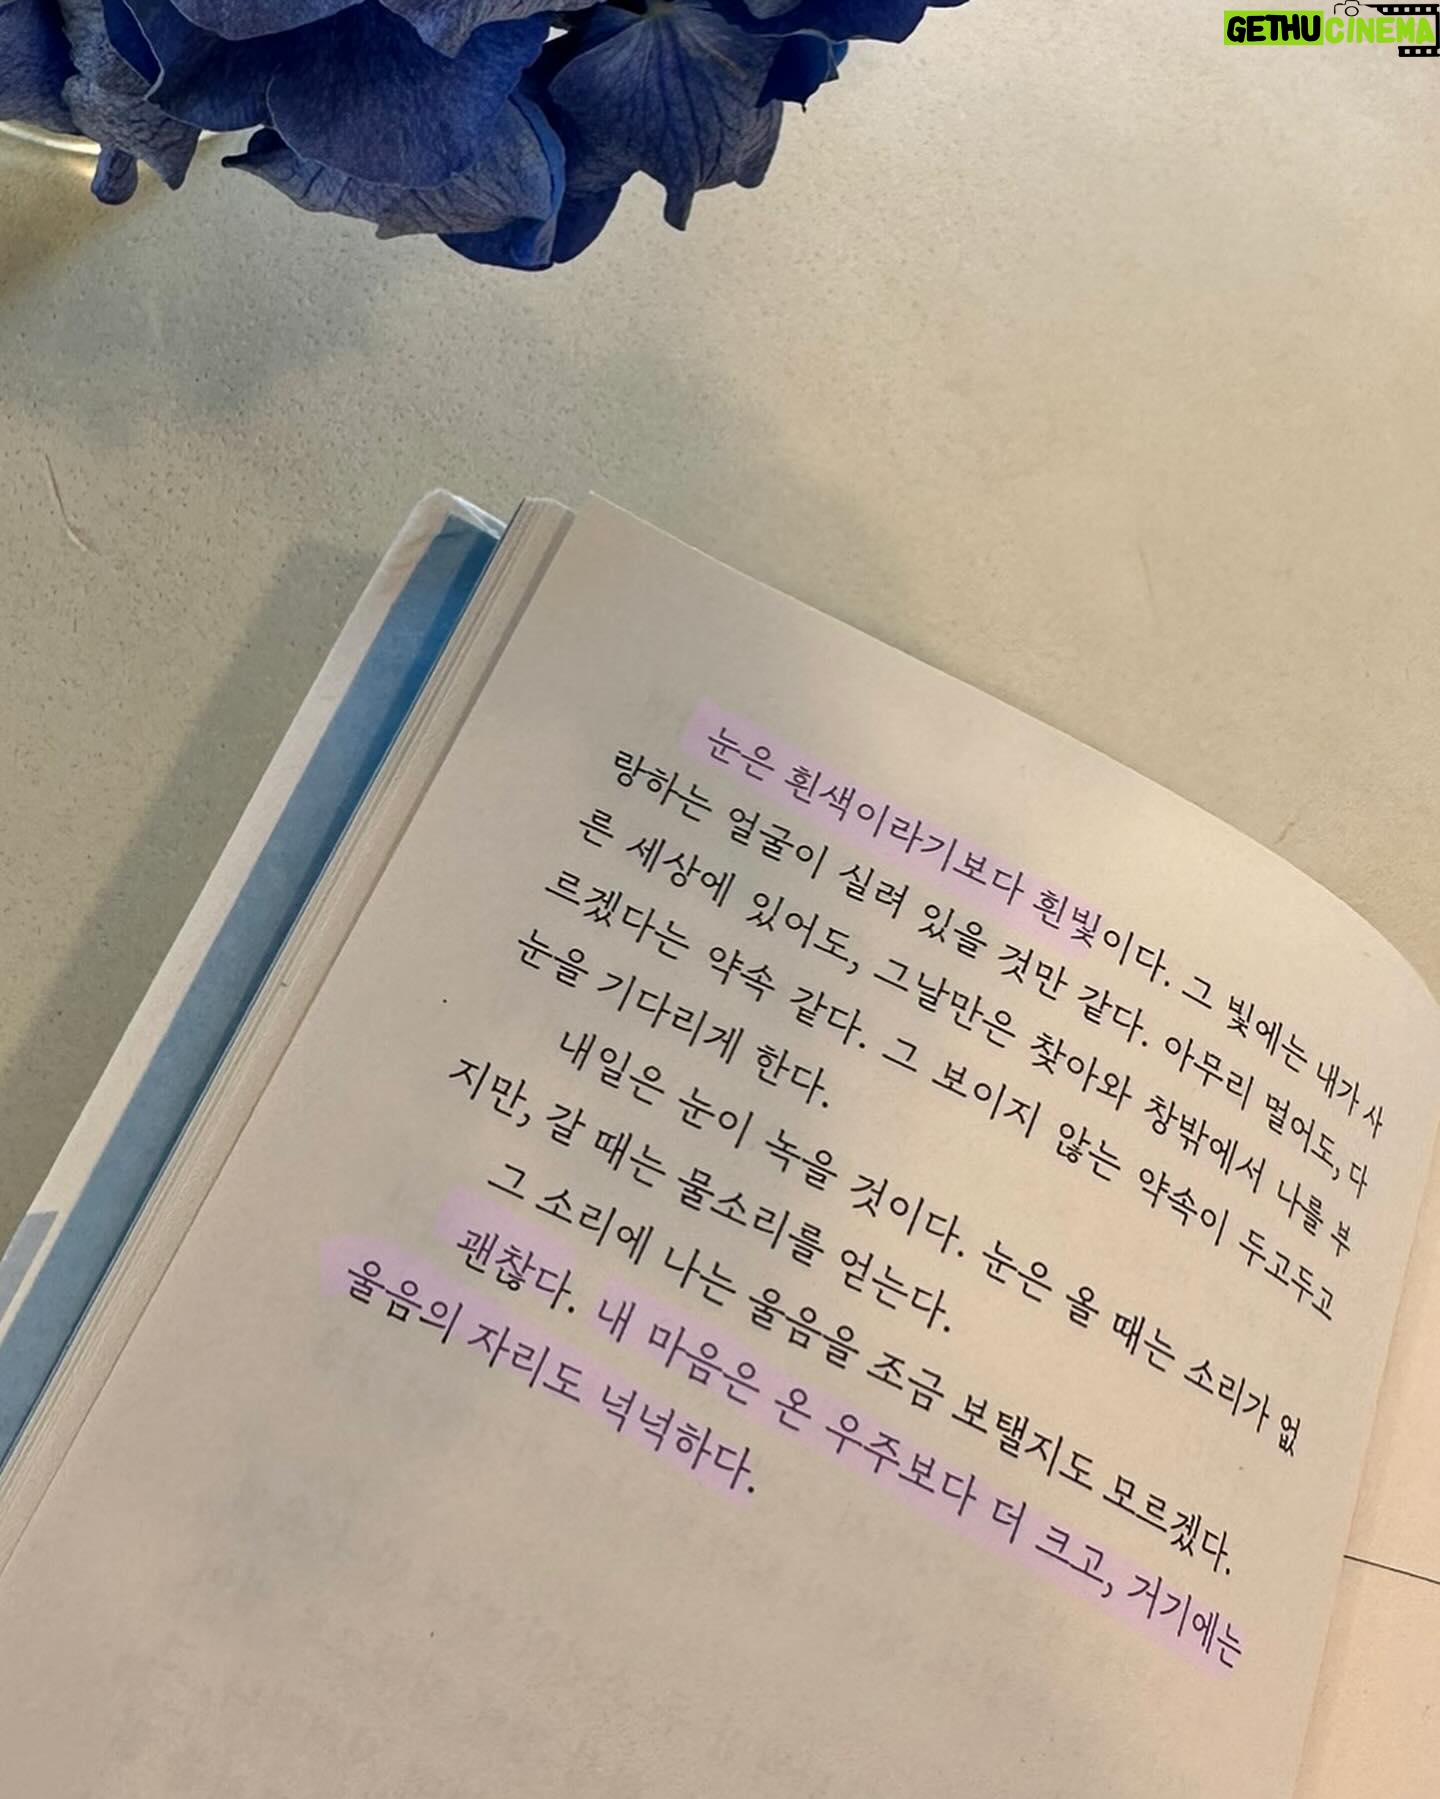 GETHUCINEMA
눈은 흰색이라기보다 흰빛이다. 그 빛에는 내가 사
랑하는 얼굴이 실려 있을 것만 같다. 아무리 멀어도, 다
른 세상에 있어도, 그날만은 찾아와 창밖에서 나를 부
르겠다는 약속 같다. 그 보이지 않는 약속이 두고두고
눈을 기다리게 한다.
내일은 눈이 녹을 것이다. 눈은 올 때는 소리가 없
지만, 갈 때는 물소리를 얻는다.
그 소리에 나는 울음을 조금 보탤지도 모르겠다.
괜찮다. 내 마음은 온 우주보다 더 크고, 거기에는
울음의 자리도 넉넉하다.